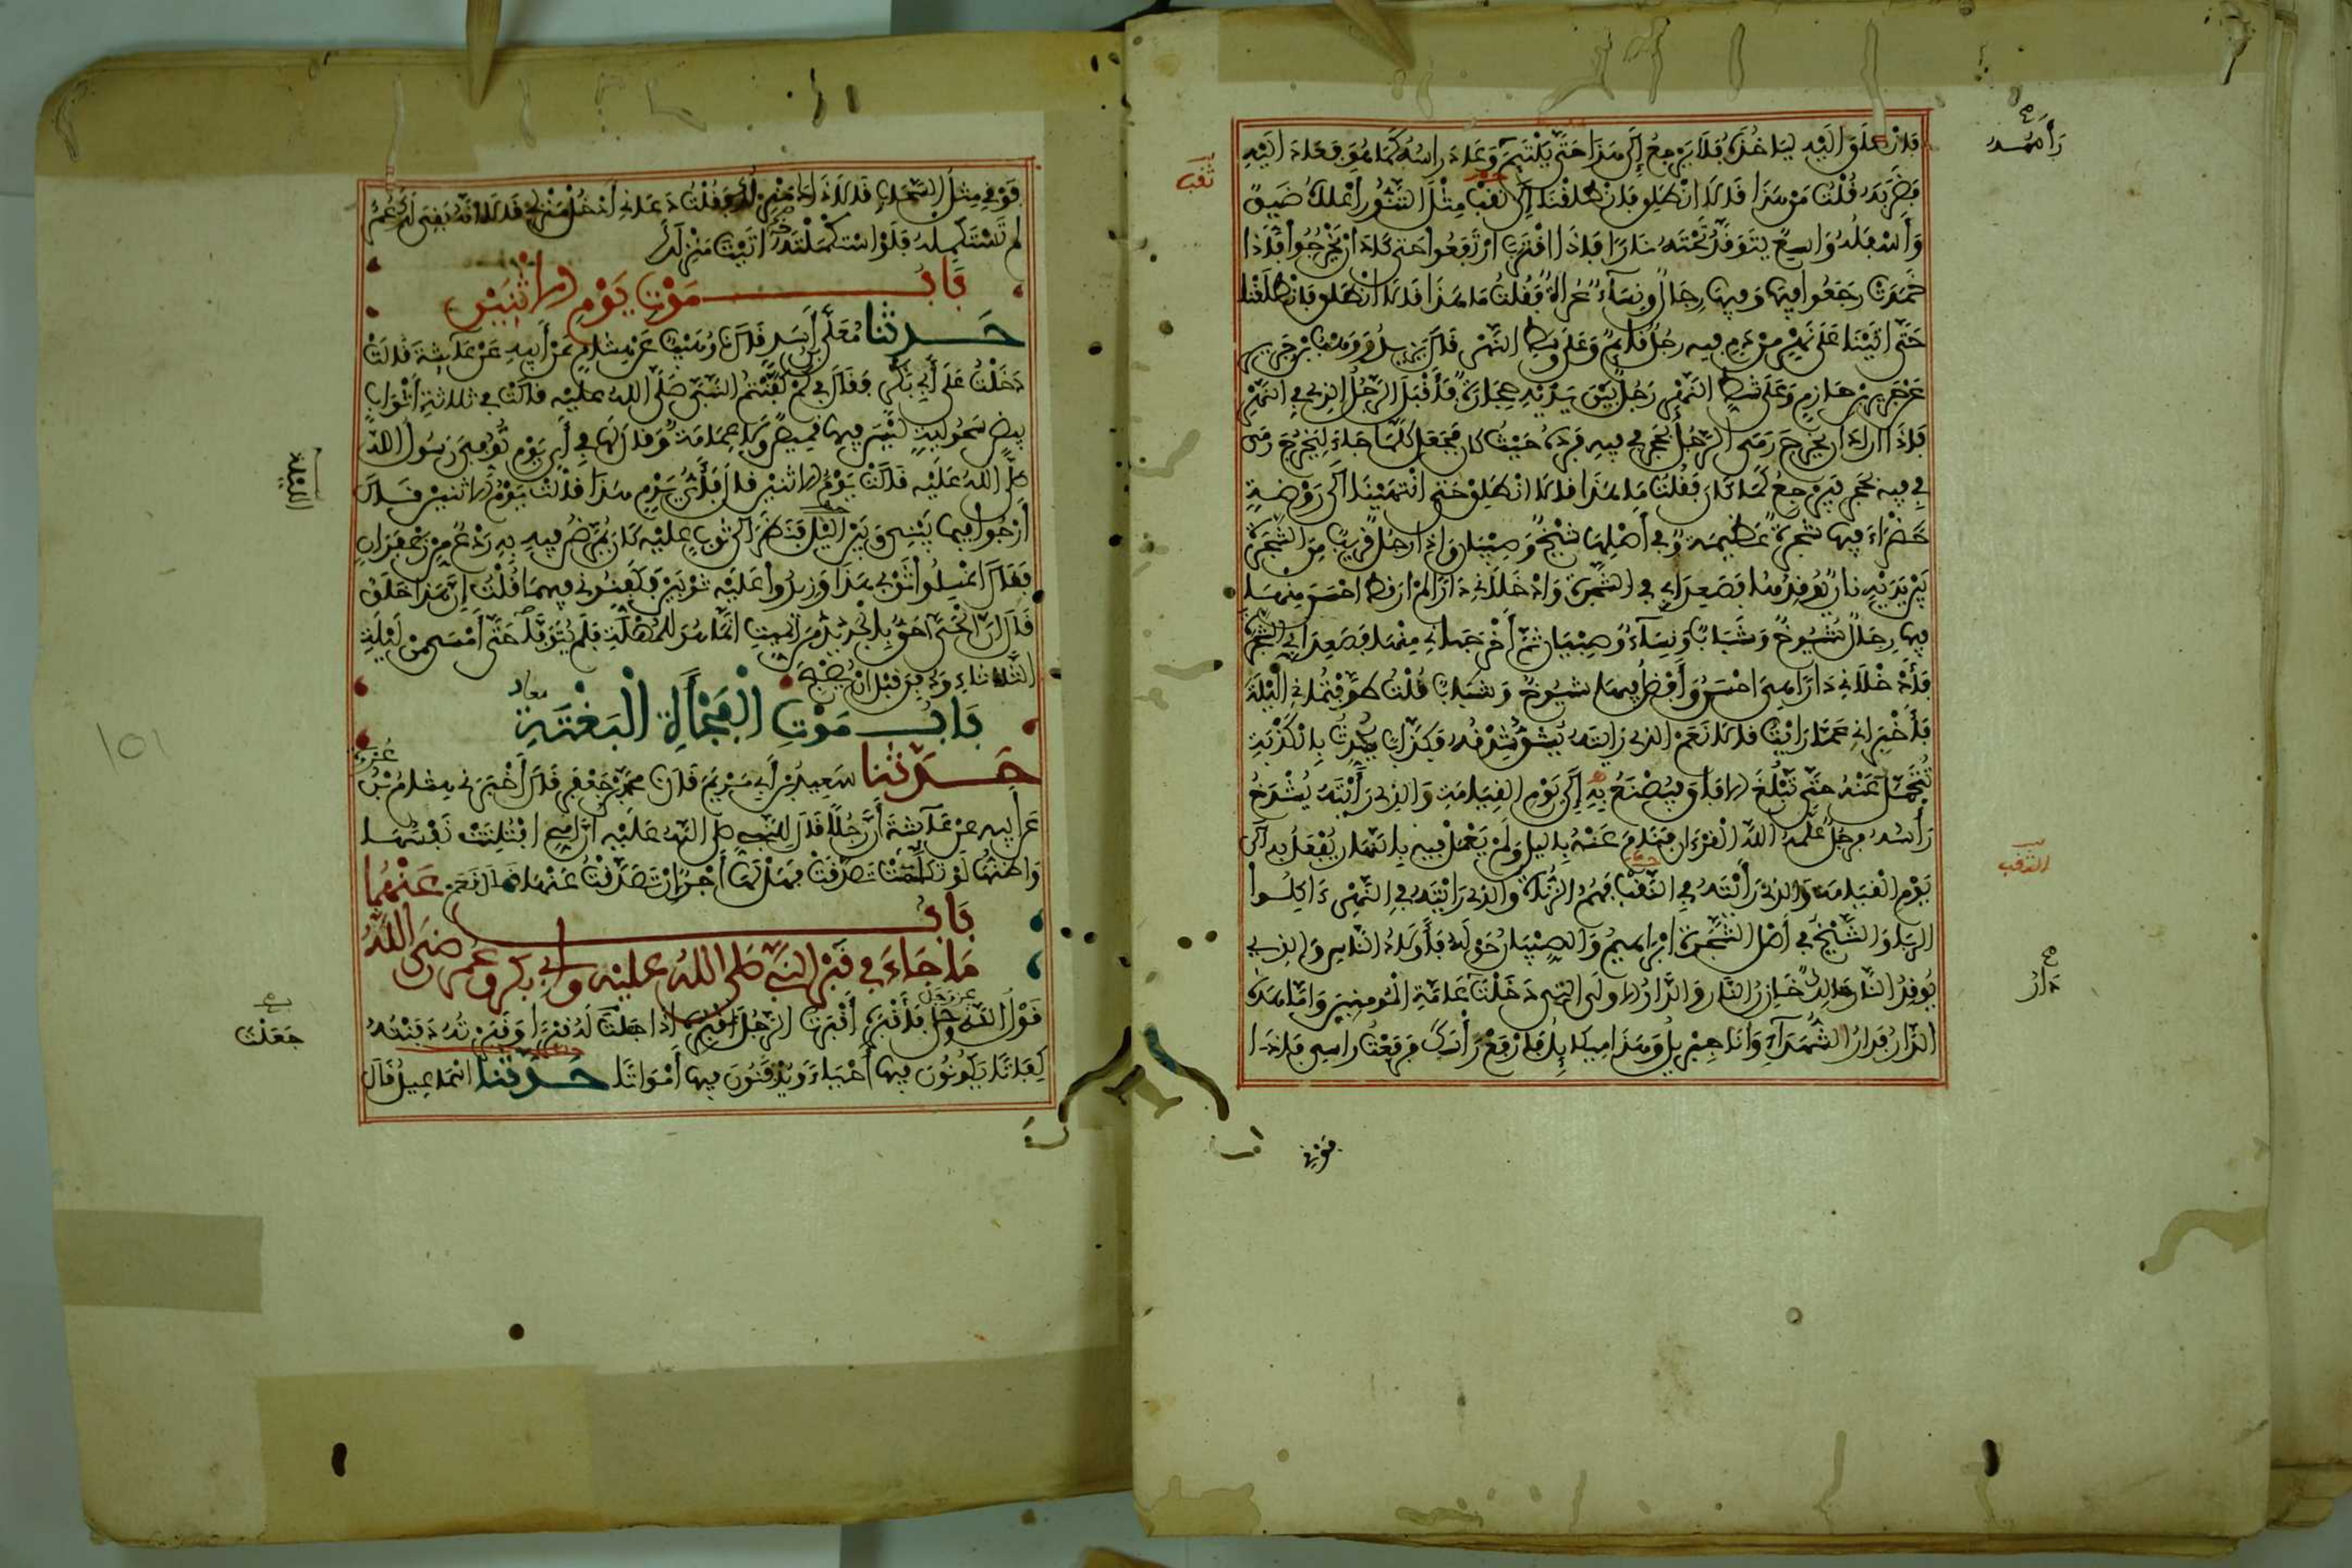 فانطلق إليه ليأخذه فلا يرجع إلى هذا حتى يلتئم وعاد راسه كما هو فعاد اليه
فضربه قلت من هذا قالا انطلق فانطلقنا إلى ثقب مثل التنور أعلاه ضيق
وأسفله واسع يتوقد تحته نارا فإذا اقترب ارتفعوا حتى كاد أن يخرجوا فإذا
خمدت رجعوا فيها وفيها رجال ونساء عراة فقلت ما هذا قالا انطلق فانطلقنا
حتى اتينا على نهر من دم فيه رجل قائم وعلى وسط النهر قال يزيد ووهب بن جرير
عن جرير بن حازم وعلى شط النهر رجل بين يديه حجارة فأقبل الرجل الذي في النهر
فإذا اراد ان يخرج رمى الرجل بحجر في فيه فرده حيث كان فجعل كلما جاء ليخرج رمى
في فيه بحجر فيرجع كما كان فقلت ما هذا قالا انطلق حتى انتهينا الى روضة
خضراء فيها شجرة عظيمة وفي أصلها شيخ وصبيان وإذا رجل قريب من الشجرة
بين يديه نار يوقدها فصعدا بي في الشجرة وادخلاني دارا لم ار قط احسن منها
فيها رجال شيوخ وشباب ونساء وصبيان ثم أخرجاني منها فصعدا بي الشجرة
فأدخلاني دارا هي احسن وأفضل فيها شيوخ وشباب قلت طوفتماني الليلة
فأخبراني عما رايت قالا نعم الذي رايته يشق شدقه فكذاب يحدث بالكذبة
فتحمل عنه حتى تبلغ الافاق فيصنع به إلى يوم القيامة والذي رأيته يشدخ
رأسه فرجل علمه الله القرءان فنام عنه بالليل ولم يعمل فيه بالنهار يفعل به الى
يوم القيامة والذي رأيته في الثقب فهم الزناة والذي رايته في النهر ءاكلوا
الربا والشيخ في أصل الشجرة ابراهيم والصبيان حوله فأولاد الناس والذي
يوقد النار مالك خازن النار والدار الاولى التي دخلت عامة المومنين واما هذه
الدار فدار الشهداء وانا جبريل وهذا ميكايل فارفع رأسك فرفعت راسي فإذا
رأسه
ثقب
النقب
دار
فوقي
فوقي مثل السحاب قالا ذاك منزلك فقلت دعاني أدخل منزلي قالا انه بقي لك عمر
لم تستكمله فلو استكملته اتيت منزلك
باب موت يوم الاثنين
حدثنا معلى بن أسد قال نا وهيب عن هشام عن أبيه عن عائشة قالت
دخلت على أبي بكر فقال في كم كفنتم النبي صلى الله عليه قالت في ثلاثة أثواب
بيض سحولية ليس فيها قميص ولا عمامة وقال لها في أي يوم توفي رسول الله
صلى الله عليه قالت يوم الاثنين قال فأي يوم هذا قالت يوم الاثنين قال
أرجوا فيما بيني وبين الليل فنظر الى ثوب عليه كان يمرض فيه به ردع من زعفران
فقال اغسلوا ثوبي هذا وزيدوا عليه ثوبين فكفنوني فيهما قلت إن هذا خلق
قال ان الحي احق بالجديد من الميت انما هو للمهلة فلم يتوف حتى أمسى من ليلة
الثلاثاء ودفن قبل ان يصبح
باب موت الفجأة البغتة
حدثنا سعيد بن أبي مريم قال نا محمد بن جعفر قال أخبرني هشام بن عروة
عن أبيه عن عائشة أن رجلا قال للنبي صلى الله عليه ان امي افتلتت نفسها
واظنها لو تكلمت تصدقت فهل لها أجر إن تصدقت عنها قال نعم
باب
ما جاء في قبر النبي صلى الله عليه وأبي بكر وعمر رضي الله عنهما
قول الله عز وجل فأقبره أقبرت الرجل أقبره إذا جعلت له قبرا وقبرته دفنته
كفاتا يكونون فيها أحياء ويدفنون فيها أمواتا حدثنا اسماعيل قال
الليلة
جعلت
101